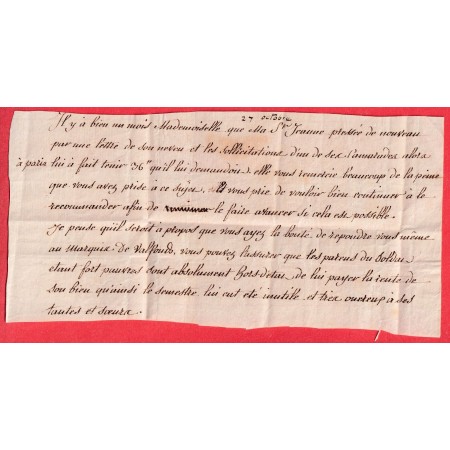 27 octobre
Il y à bien un mois Mademoiselle que Ma Sr Jeanne pressée de nouveau
par une lettre de son neveu et les sollicitations d'un de ses Camarades alors
à paris lui à fait tenir 36" qu'il lui demandoit. elle vous remercie beaucoup de la peine
que vous avez prise à ce sujet, vous prie de vouloir bien continuer à le
recommander afin de le faire avancer si cela est possible.
Je pense qu'il seroit à propos que vous ayez la bonté de repondre vous même
au Marquis de Valfons, vous pouvez l'assurer que les parens du Soldat
etant fort pauvres sont absolument hors d'etat de lui payer la rente de
son bien qu'ainsi le semestre lui eut été inutile et tres onereux à ses
tantes et sœurs.